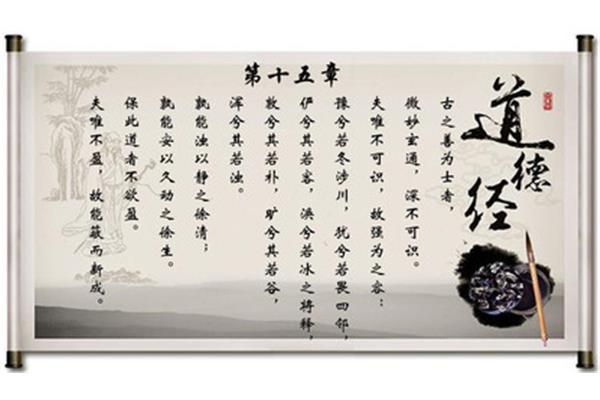 道德经
第十五章
古之善为士者，
微妙玄通，深不可识。
夫唯不可识，故强为之容；
豫兮若冬涉川，犹兮若畏四邻，
俨兮其若客，涣兮若冰之将释，
敦兮其若朴，旷兮其若谷，
浑兮其若浊。
孰能浊以静之徐清；
孰能安以久动之徐生。
保此道者不欲盈。
夫唯不盈，故能蔽而新成。